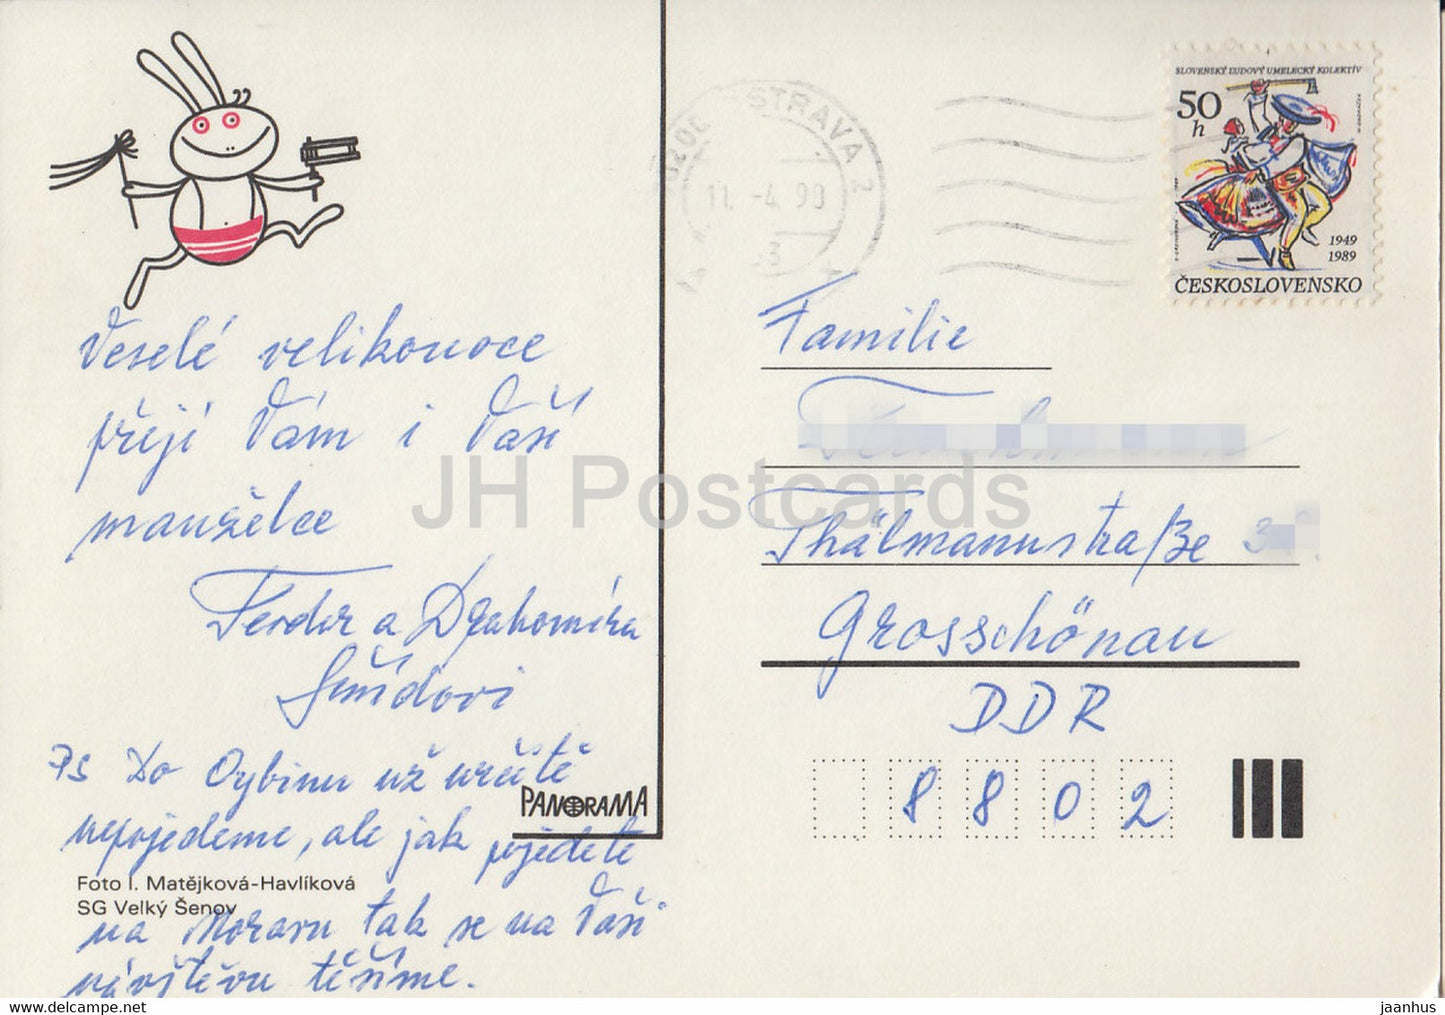 Veselé velikonoce
přejí Vám i Vaší
manželce
Teodor a Drahomíra
Šmídovi
PS Do Oybinu už určitě
nepojedeme, ale jak pojedete
na Moravu tak se na Vaši
návštěvu těšíme.
PANORAMA
Foto I. Matějková-Havlíková
SG Velký Šenov
OSTRAVA 2
11.-4.90
SLOVENSKÝ ĽUDOVÝ UMELECKÝ KOLEKTÍV
50
h
1949
1989
ČESKOSLOVENSKO
Familie
Thälmannstraße 3
Grosschönau
DDR
8802
JH Postcards
www.delcampe.net
jaanhus